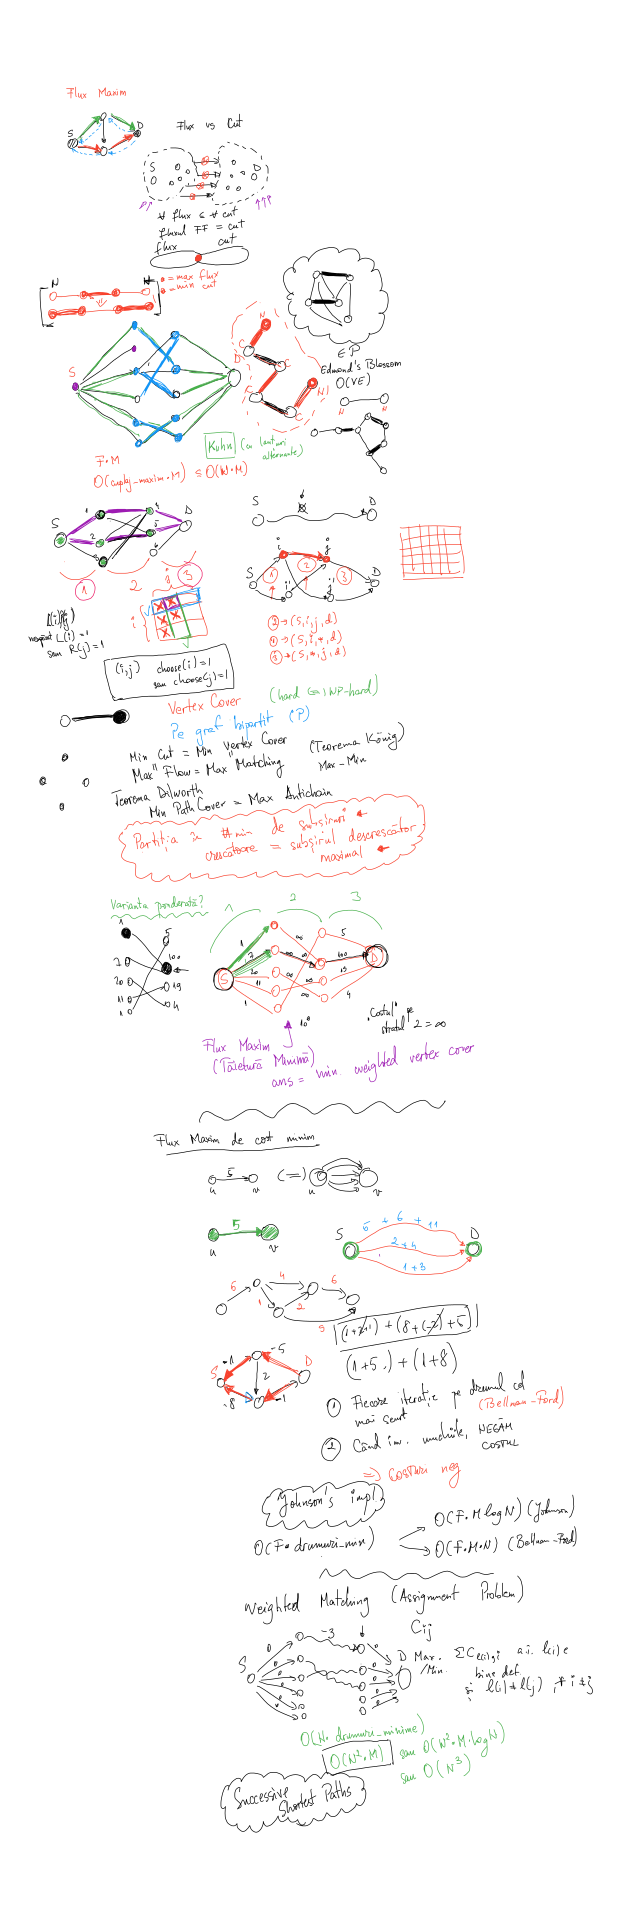 Flux Maxim
S
D
Flux vs Cut
S
D
∀ flux ≤ ∀ cut
fluxul FF = cut
flux
cut
N
N
= max flux
= min cut
S
N
C
D
C
C
C
N!
∈ P
Edmond's Blossom
O(VE)
N
N
Kuhn (cu lanturi
alternante)
F·M
O(cuplaj_maxim·M) ≤ O(N·M)
S
1
2
3
5
6
D
S
D
i
j
i'
j'
S
D
1
2
3
1
2
3
j
i
② → (S,i,j,d)
① → (S,i,*,d)
③ → (S,*,j,d)
L(i)=1
sau R(j)=1
(i,j) choose(i)=1
sau choose(j)=1
Vertex Cover (hard ⇔ NP-hard)
Pe graf bipartit (P)
Min Cut = Min Vertex Cover (Teorema König)
Max Flow = Max Matching Max-Min
Teorema Dilworth
Min Path Cover = Max Antichain
Partiția în # min de subșiruri
crescătoare = subșirul descrescător
maximal
Varianta ponderată?
1
2
3
1
5
100
19
4
20
11
1
S
1
20
11
1
∞
∞
∞
∞
5
100
19
4
D
"Costul" pe
stratul 2 = ∞
Flux Maxim
(Tăietură Minimă)
ans = min weighted vertex cover
Flux Maxim de cost minim
5
u
v
(=)
u
v
5
u
v
S
D
5 + 6 + 11
2+4
1+3
6
4
6
1
2
5
(1+2+1) + (8+(-2)+5)
(1+5) + (1+8)
-1
-5
S
2
D
-8
-1
① Fiecare iterație pe drumul cel
mai scurt (Bellman-Ford)
② Când inv. muchiile, NEGĂM
COSTUL
=) Costuri neg
Johnson's impl.
O(F·drumuri_min)
O(F·M logN) (Johnson)
O(F·M·N) (Bellman-Ford)
Weighted Matching (Assignment Problem)
-3
Cij
S
D
Max.
/Min.
a.i. l(i) e
bine def.
și l(i)≠l(j), ∀ i≠j
O(N·drumuri_minime)
O(N²·M) sau O(N²·M·logN)
sau O(N³)
Successive
Shortest Paths